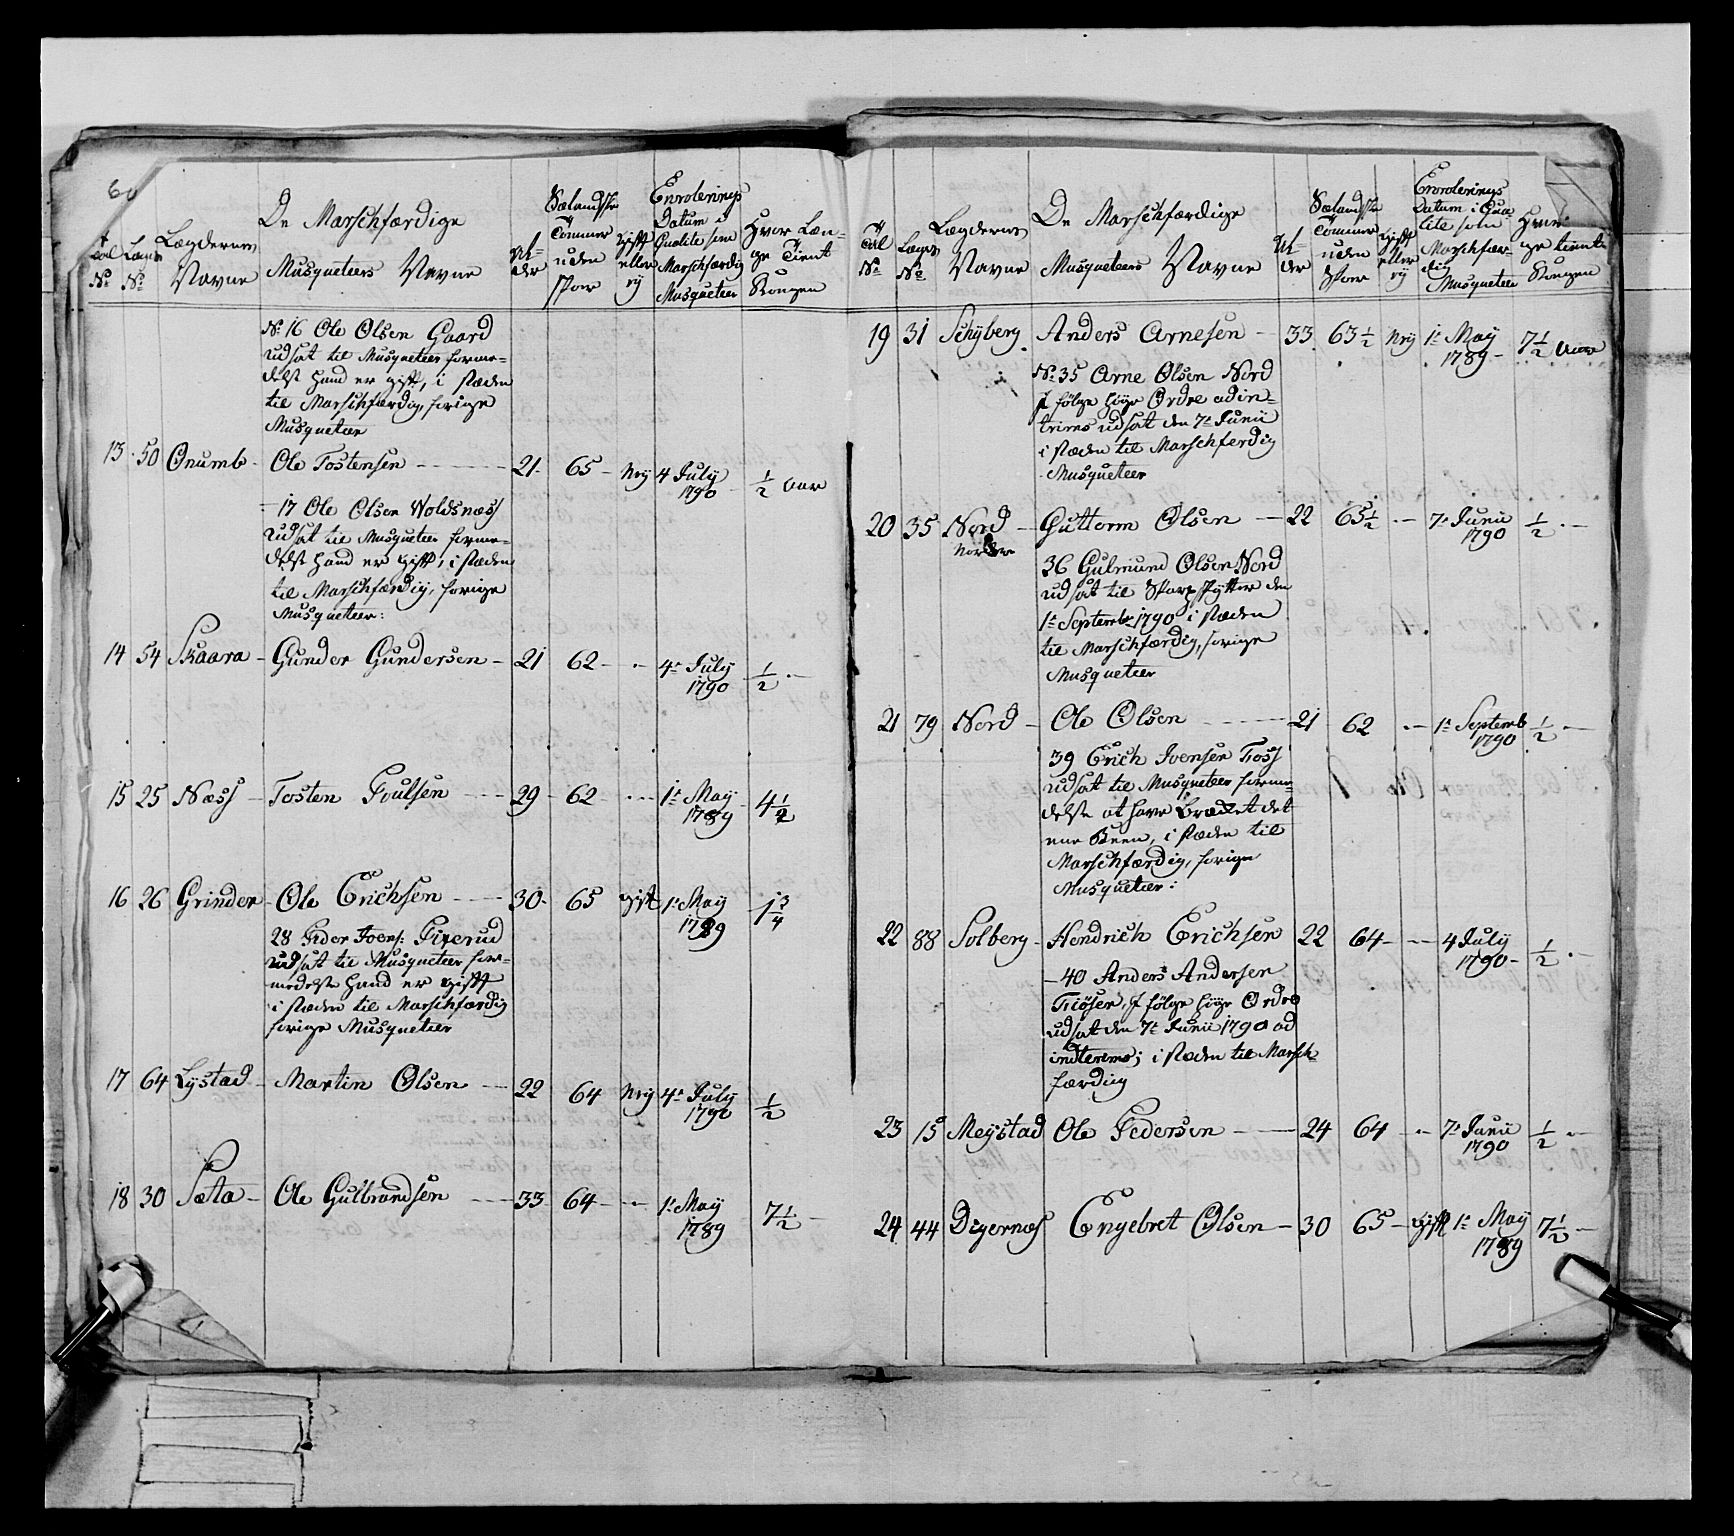 60
Tal No
Lægds No
Lægdernes Navne
De Marschfærdige Musqueteers Navne
Alder
Sælandske Tommer uden Skoer
Gift eller ey
Enrolerings Datum i Qualite som Marschfærdig Musqueteer
Hvor Længe Tient Kongen
No 16 Ole Olsen Gaard
udsat til Musqueteer forme-
delst hand er gift, i stæden
til Marschfærdig, forige
Musqueteer
13 50 Onumb Ole Tostensen 21 65 Ney 4 July 1790 1/2 Aar
17 Ole Olsen Woldsnæss
udsat til Musqueteer forme-
delst hand er gift, i stæden
til Marschfærdig, forige
Musqueteer:
14 54 Skaara Gunder Gundersen 21 62 4e July 1790 1/2
15 25 Næss Tosten Poulsen 29 62 1e May 1789 4 1/2
16 26 Grinder Ole Erichsen 30 65 gift 1e May 1789 1 3/4
28 Peder Joens:
udsat til Musqueteer for-
medelst hand er gift
i stæden til Marschfærdig
forige Musqueteer
17 64 Lystad Martin Olsen 22 64 Ney 4e July 1790 1/2
18 30 Sæta Ole Gulbrandsen 33 64 1e May 1789 7 1/2
Tal No
Lægds No
Lægdernes Navne
De Marschfærdige Musqueteers Navne
Alder
Sælandske Tommer uden Skoer
Gift eller ey
Enrolerings Datum i Qualite som Marschfærdig Musqueteer
Hvor længe tient Kongen
19 31 Schyberg Anders Arnesen 33 63 1/2 Ney 1e May 1789 7 1/2 Aar
No 35 Arne Olsen Nord
I følge høye Ordre adin-
trims udsat den 7e Junii
i stæden til Marschferdig
Musqueteer
20 35 Nord Guttorm Olsen 22 65 1/2 7e Junii 1790 1/2
36 Gulmund Olsen Nord
udsat til Skarpskytter den
1e Septembr 1790 i stæden
til Marschfærdig, forige
Musqueteer
21 79 Nord Ole Olsen 21 62 1e Septemb 1790 1/2
39 Erich Joensen Foss
udsat til Musqueteer forme-
delst at have Brækket det
ene Been, i stæden til
Marschfærdig, forige
Musqueteer:
22 88 Solberg Hendrich Erichsen 22 64 4 July 1790 1/2
40 Anders Andersen
Tiøsen, I følge høye Ordre
udsat den 7e Junii 1790 ad
indterems; i stæden til Marsch-
færdig
23 15 Meystad Ole Pedersen 24 64 7e Junii 1790 1/2
24 44 Digernes Engebret Olsen 30 65 gift 1e May 1789 7 1/2